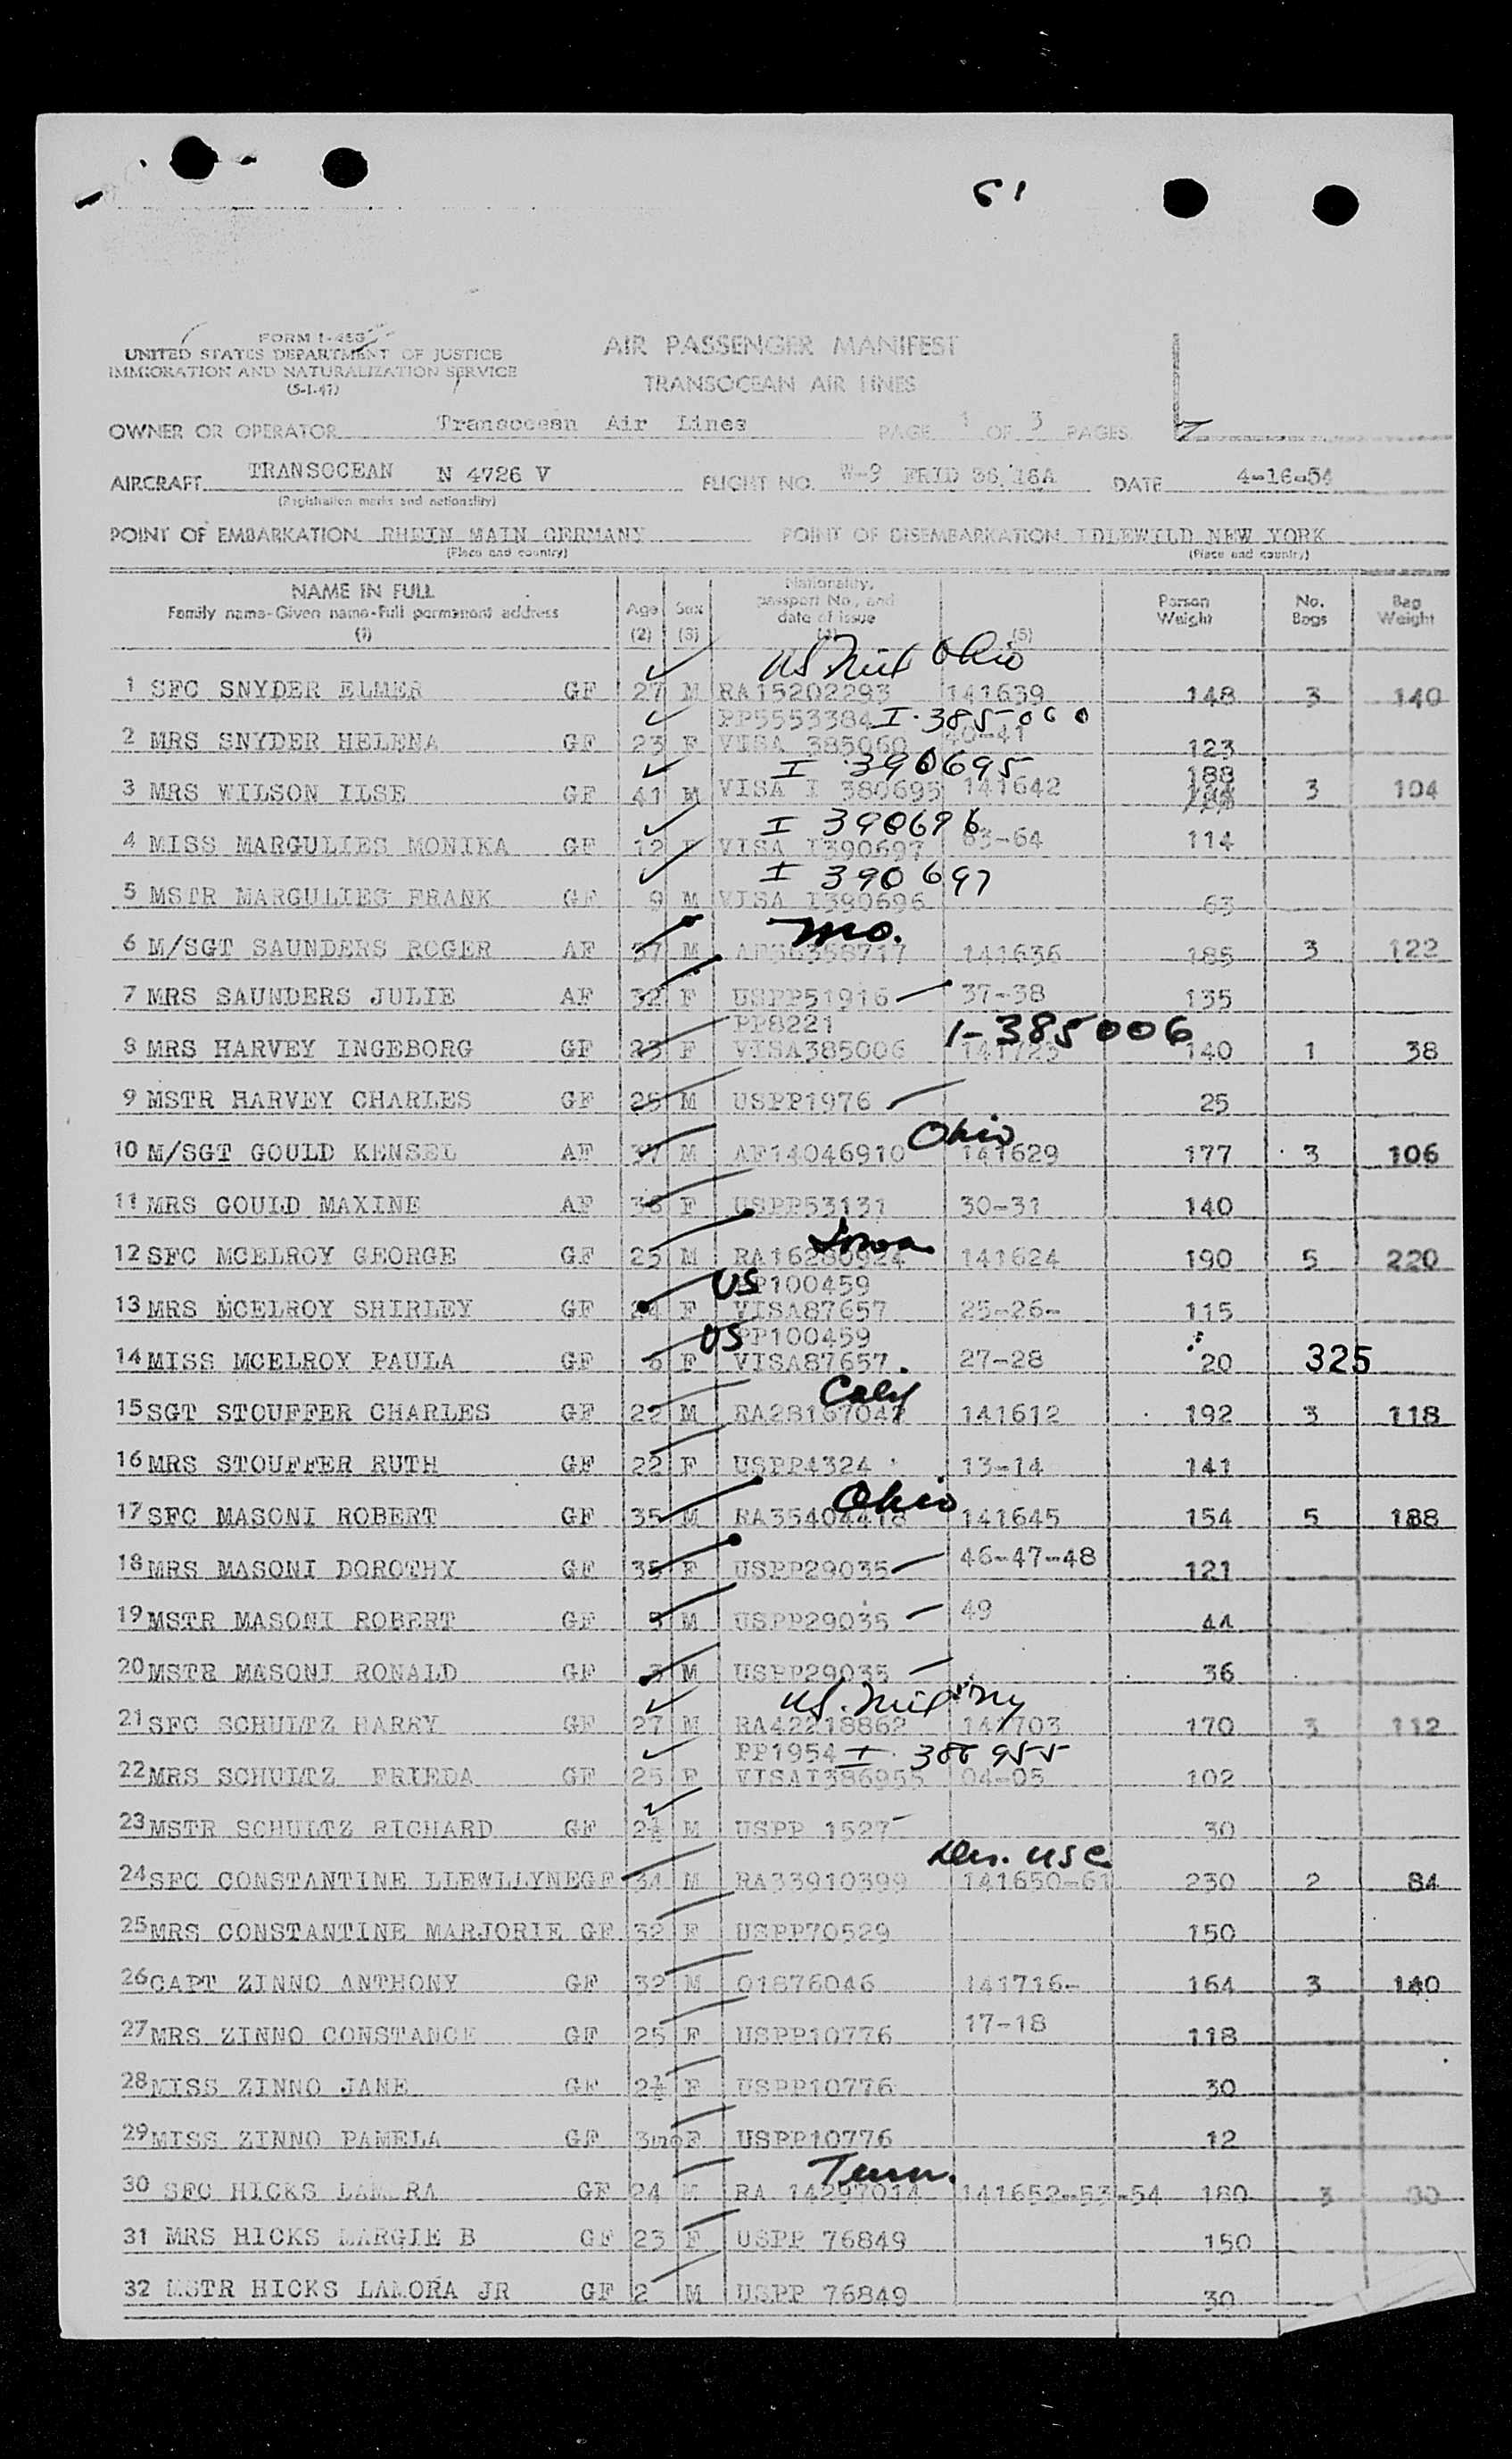 51
FORM I-466
UNITED STATES DEPARTMENT OF JUSTICE
IMMIGRATION AND NATURALIZATION SERVICE
(5-1-47)
AIR PASSENGER MANIFEST
TRANSOCEAN AIR LINES
OWNER OR OPERATOR Transocean Air Lines PAGE 1 OF 3 PAGES
AIRCRAFT TRANSOCEAN N 4726 V FLIGHT NO. W-9 FRID 36/16A DATE 4-16-54
(Registration marks and nationality)
POINT OF EMBARKATION RHEIN MAIN GERMANY POINT OF DISEMBARKATION IDLEWILD NEW YORK
(Place and country) (Place and country)
NAME IN FULL
Family name-Given name-Full permanent address
(1)
Age
(2)
Sex
(3)
Nationality,
passport No., and
date of issue
(4)
(5)
Person
Weight
No.
Bags
Bag
Weight
US Mil Ohio
1 SFC SNYDER ELMER GF 27 M RA15202293 141639 148 3 140
PP5553384 I-385060
2 MRS SNYDER HELENA GF 23 F VISA 385060 40-41 123
I 390695 188
3 MRS WILSON ILSE GF 41 M VISA I 380695 141642 3 104
I 390696
4 MISS MARGULIES MONIKA GF 12 F VISA I390697 63-64 114
I 390697
5 MSTR MARGULIES FRANK GF 9 M VISA I390696 63
Mo.
6 M/SGT SAUNDERS ROGER AF 37 M AF36358717 141636 185 3 122
7 MRS SAUNDERS JULIE AF 32 F USPP51916 37-38 135
PP8221 I-385006
8 MRS HARVEY INGEBORG GF 23 F VISA385006 141723 140 1 38
9 MSTR HARVEY CHARLES GF M USPP1976 25
Ohio
10 M/SGT GOULD KENSEL AF 37 M AF14046910 141629 177 3 106
11 MRS GOULD MAXINE AF 36 F USPP53131 30-31 140
Iowa
12 SFC MCELROY GEORGE GF 25 M RA16280924 141624 190 5 220
US PP100459
13 MRS MCELROY SHIRLEY GF 24 F VISA87657 25-26- 115
US PP100459
14 MISS MCELROY PAULA GF 6 F VISA87657 27-28 20 325
Calif
15 SGT STOUFFER CHARLES GF 22 M RA28167047 141612 192 3 118
16 MRS STOUFFER RUTH GF 22 F USPP4324 13-14 141
Ohio
17 SFC MASONI ROBERT GF 35 M RA35404418 141645 154 5 188
18 MRS MASONI DOROTHY GF 35 F USPP29035 46-47-48 121
19 MSTR MASONI ROBERT GF 5 M USPP29035 49 44
20 MSTR MASONI RONALD GF 3 M USPP29035 36
US. Mil NY
21 SFC SCHULTZ HARRY GF 27 M RA42218862 141703 170 3 112
PP1954 I 386955
22 MRS SCHULTZ FRIEDA GF 25 F VISAI386955 04-05 102
23 MSTR SCHULTZ RICHARD GF 2½ M USPP 1527 30
USC
24 SFC CONSTANTINE LLEWLLYNE GF 34 M RA33910399 141650-61 230 2 84
25 MRS CONSTANTINE MARJORIE GF 32 F USPP70529 150
26 CAPT ZINNO ANTHONY GF 32 M 01876046 141716- 164 3 140
27 MRS ZINNO CONSTANCE GF 25 F USPP10776 17-18 118
28 MISS ZINNO JANE GF 2½ F USPP10776 30
29 MISS ZINNO PAMELA GF 3mo F USPP10776 12
Tenn.
30 SFC HICKS LAMORA GF 24 M RA 14297014 141652-53-54 180 3
31 MRS HICKS MARGIE B GF 23 F USPP 76849 150
32 MSTR HICKS LAMORA JR GF 2 M USPP 76849 30